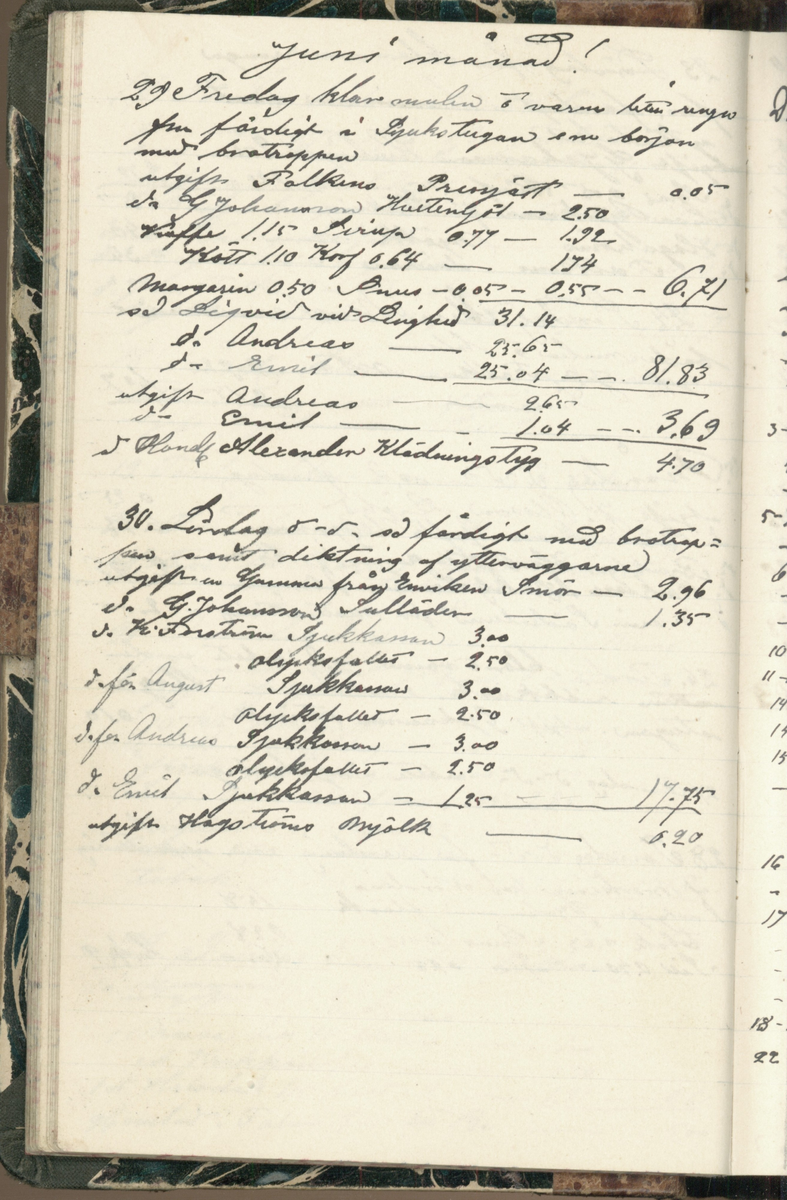 Juni månad!
29 Fredag klar mulen o varm litet rengn
fm färdigt i Sjukstugan em börjon
med brotroppen
utgift Falkens Presjäst — 0.05
do G Johansson Hvetemjöl — 2.50
Kaffe 1.15 Sirup 0.77 — 1.92
Kött 1.10 Korf 0.64 — 174
Margarin 0.50 Snus — 0.05 — 0.55 — — 6.71
så Liqvid vid 31.14
do Andreas — 25.65
do Emil — 25.04 — — 81.83
utgift Andreas — 2.65
do Emil — — 1.04 — — 3.69
d Handl Alexander Klädningstyg — 4.70
30. Lördag d-d- så färdigt med brotrap=
pen samt diktning af ytterväggarne
utgift en Gumma från Enviken Smör — 2.96
do G. Johansson Sulläder — 1.35
do K. Forström Sjukkassan 3.00
olycksfallet — 2.50
d. för August Sjukkassan 3.00
olycksfallet — 2.50
d. för Andreas Sjukkassan — 3.00
olycksfallet — 2.50
do Emil Sjukkassan — 1.25 — 17.75
utgift Hagströms Mjölk — 0.20
3-
5-
6
10
11-
14
14
15
16
17
18-
22